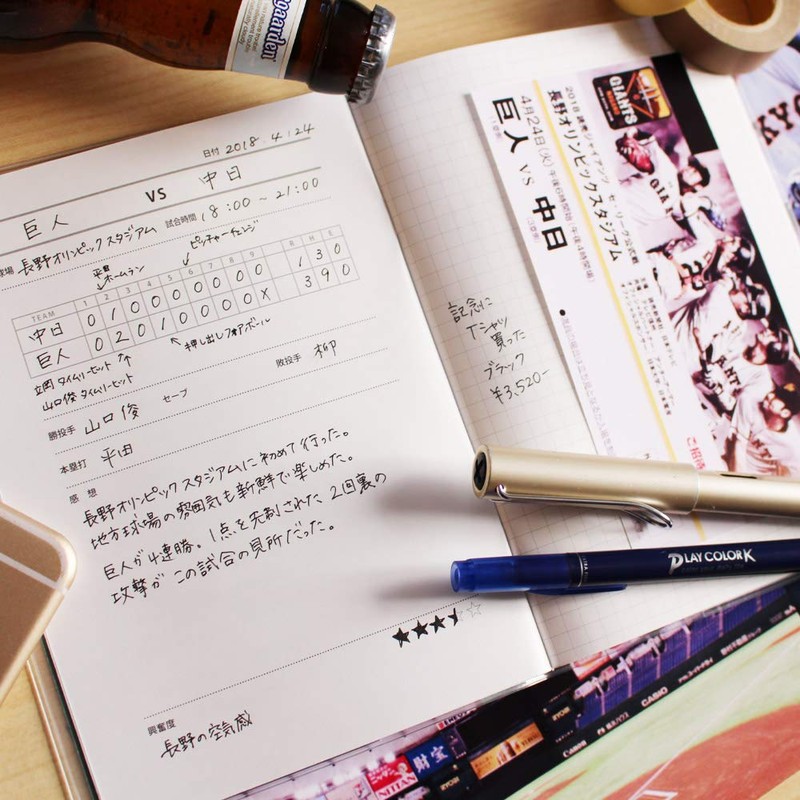 日付 2018 4.24
巨人 VS 中日
球場 長野オリンピックスタジアム 試合時間 18:00～21:00
平田 ホームラン
ピッチャーチェンジ
TEAM 1 2 3 4 5 6 7 8 9 R H E
中日 0 1 0 0 0 0 0 0 0 1 3 0
巨人 0 2 0 1 0 0 0 0 X 3 9 0
立岡 タイムリーヒット
山口俊 タイムリーヒット
押し出しフォアボール
勝投手 山口俊 セーブ 敗投手 柳
本塁打 平田
感想
長野オリンピックスタジアムに初めて行った。
地方球場の雰囲気も新鮮で楽しめた。
巨人が4連勝。1点を先制された2回裏の
攻撃がこの試合の見所だった。
★★★
興奮度
長野の空気感
記念に
Tシャツ
買った
ブラック
¥3,520-
GIANTS
2018 読売ジャイアンツ セ・リーグ公式戦
長野オリンピックスタジアム
4月24日(火)午後6時開始(午後4時開場)
巨人 VS 中日
(1塁側) (3塁側)
ご招待
PLAY COLOR K
財宝
NITTAN
RYOBI
Canon
CASIO